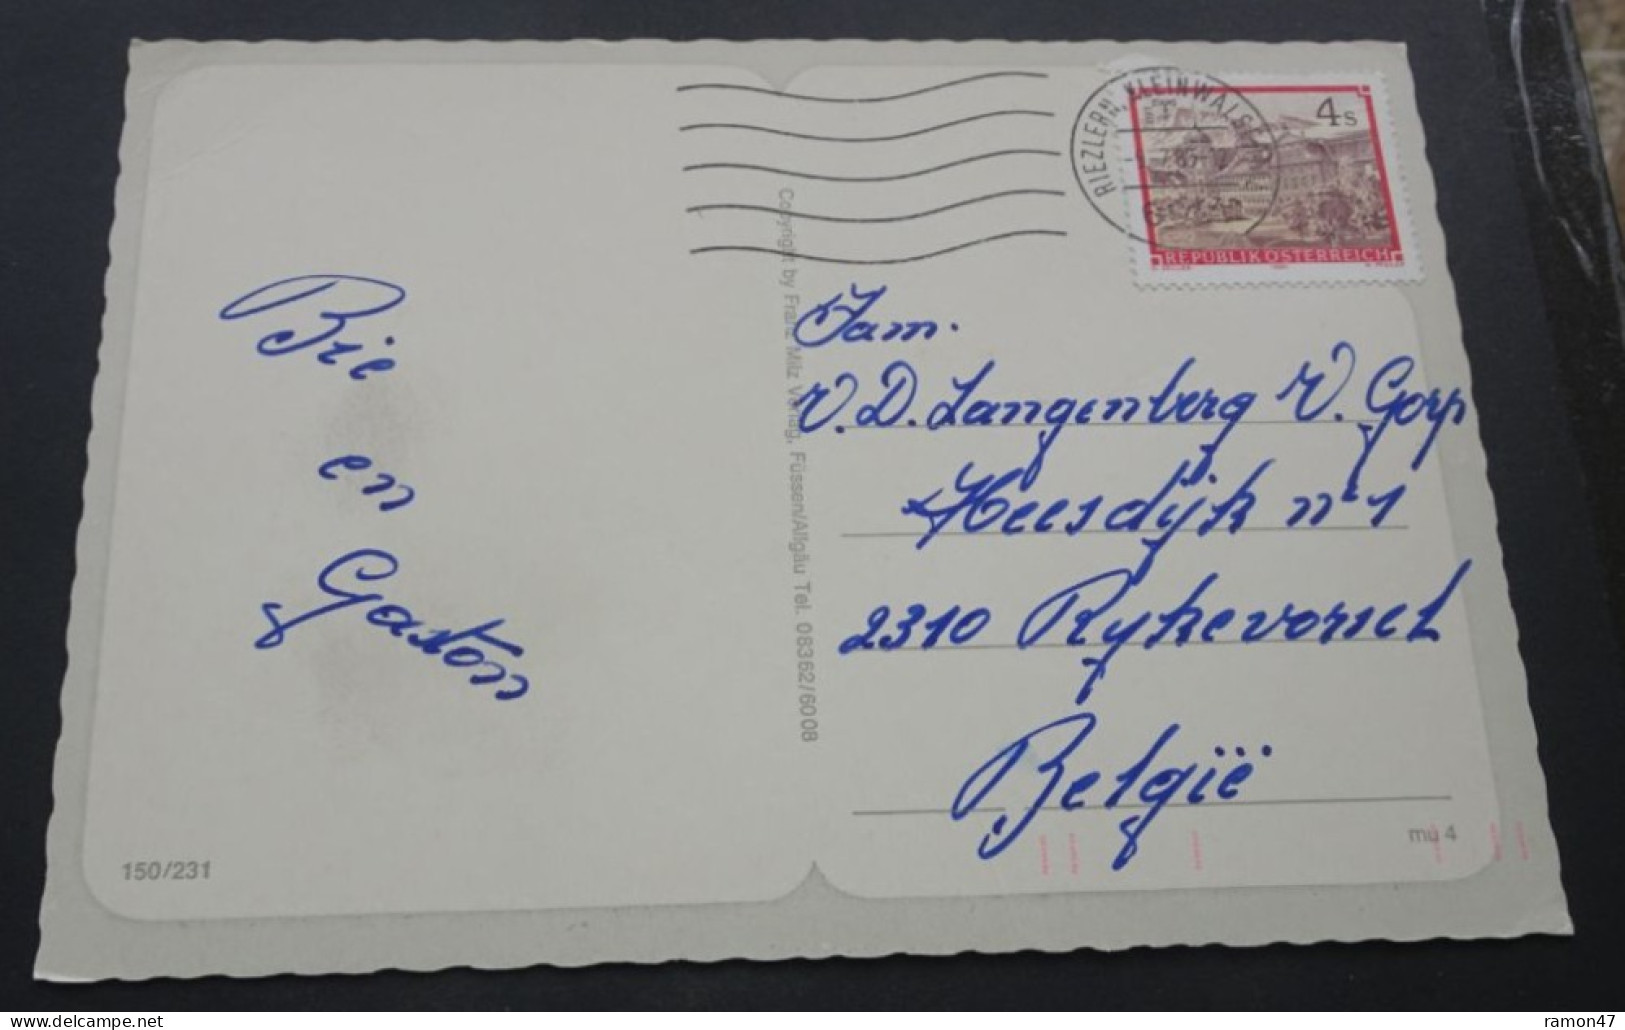 Bie
en
Gaston
150/231
Copyright by Franz Milz Verlag, Füssen/Allgäu Tel. 08362/6008
RIEZLERN, KLEINWALSERT
4s
REPUBLIK ÖSTERREICH
Fam.
V.D. Langenberg V. Gorp
Heesdijk n°1
2310 Rykevorsel
België
mü 4
delcampe.net
ramon47